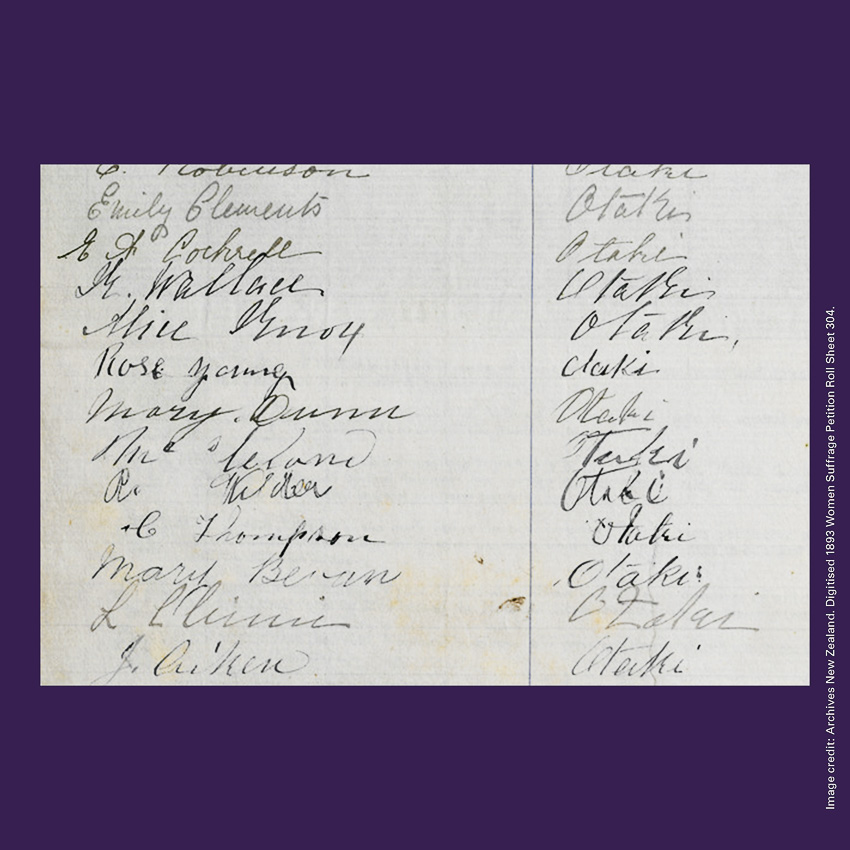 C. Robinson Otaki
Emily Clements Otaki
E A Cockrell Otaki
K. Wallace Otaki
Alice Knox Otaki.
Rose young otaki
Mary. Dunn Otaki
Otaki
R. Wilder Otaki
C Thompson Otaki
Mary Bevan Otaki
L Otaki
J. Aiken Otaki
Image credit: Archives New Zealand. Digitised 1893 Women Suffrage Petition Roll Sheet 304.